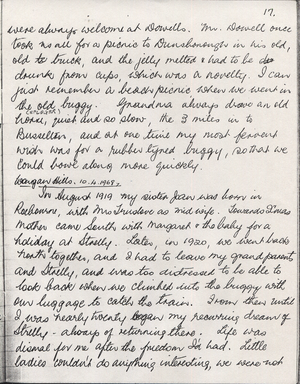 17.
were always welcome at Dowells. Mr. Dowell once
took us all for a picnic to Dunsborough in his old,
old truck, and the jelly melted & had to be
drunk from cups, which was a novelty. I can
just remember a beach picnic when we went in
the old buggy. Grandma always drove an old
horse, just and so slow, the 3 miles in to
Busselton, and at one time my most fervent
wish was for a rubber tyred buggy, so that we
could bowl along more quickly.
10.4.1968.
In August 1919 my sister Jean was born in
Roebourne, with Mrs as midwife. Towards
Mother came South with Margaret & the baby for a
holiday at Strelly. Later, in 1920, we went back
North together, and I had to leave my grandparents
and Strelly, and was too distressed to be able to
look back when we climbed into the buggy with
our luggage to catch the train. From then until
I was nearly twenty began my recurring dream of
Strelly - always of returning there. Life was
dismal for me after the freedom I'd had. Little
ladies couldn't do anything interesting, we were not